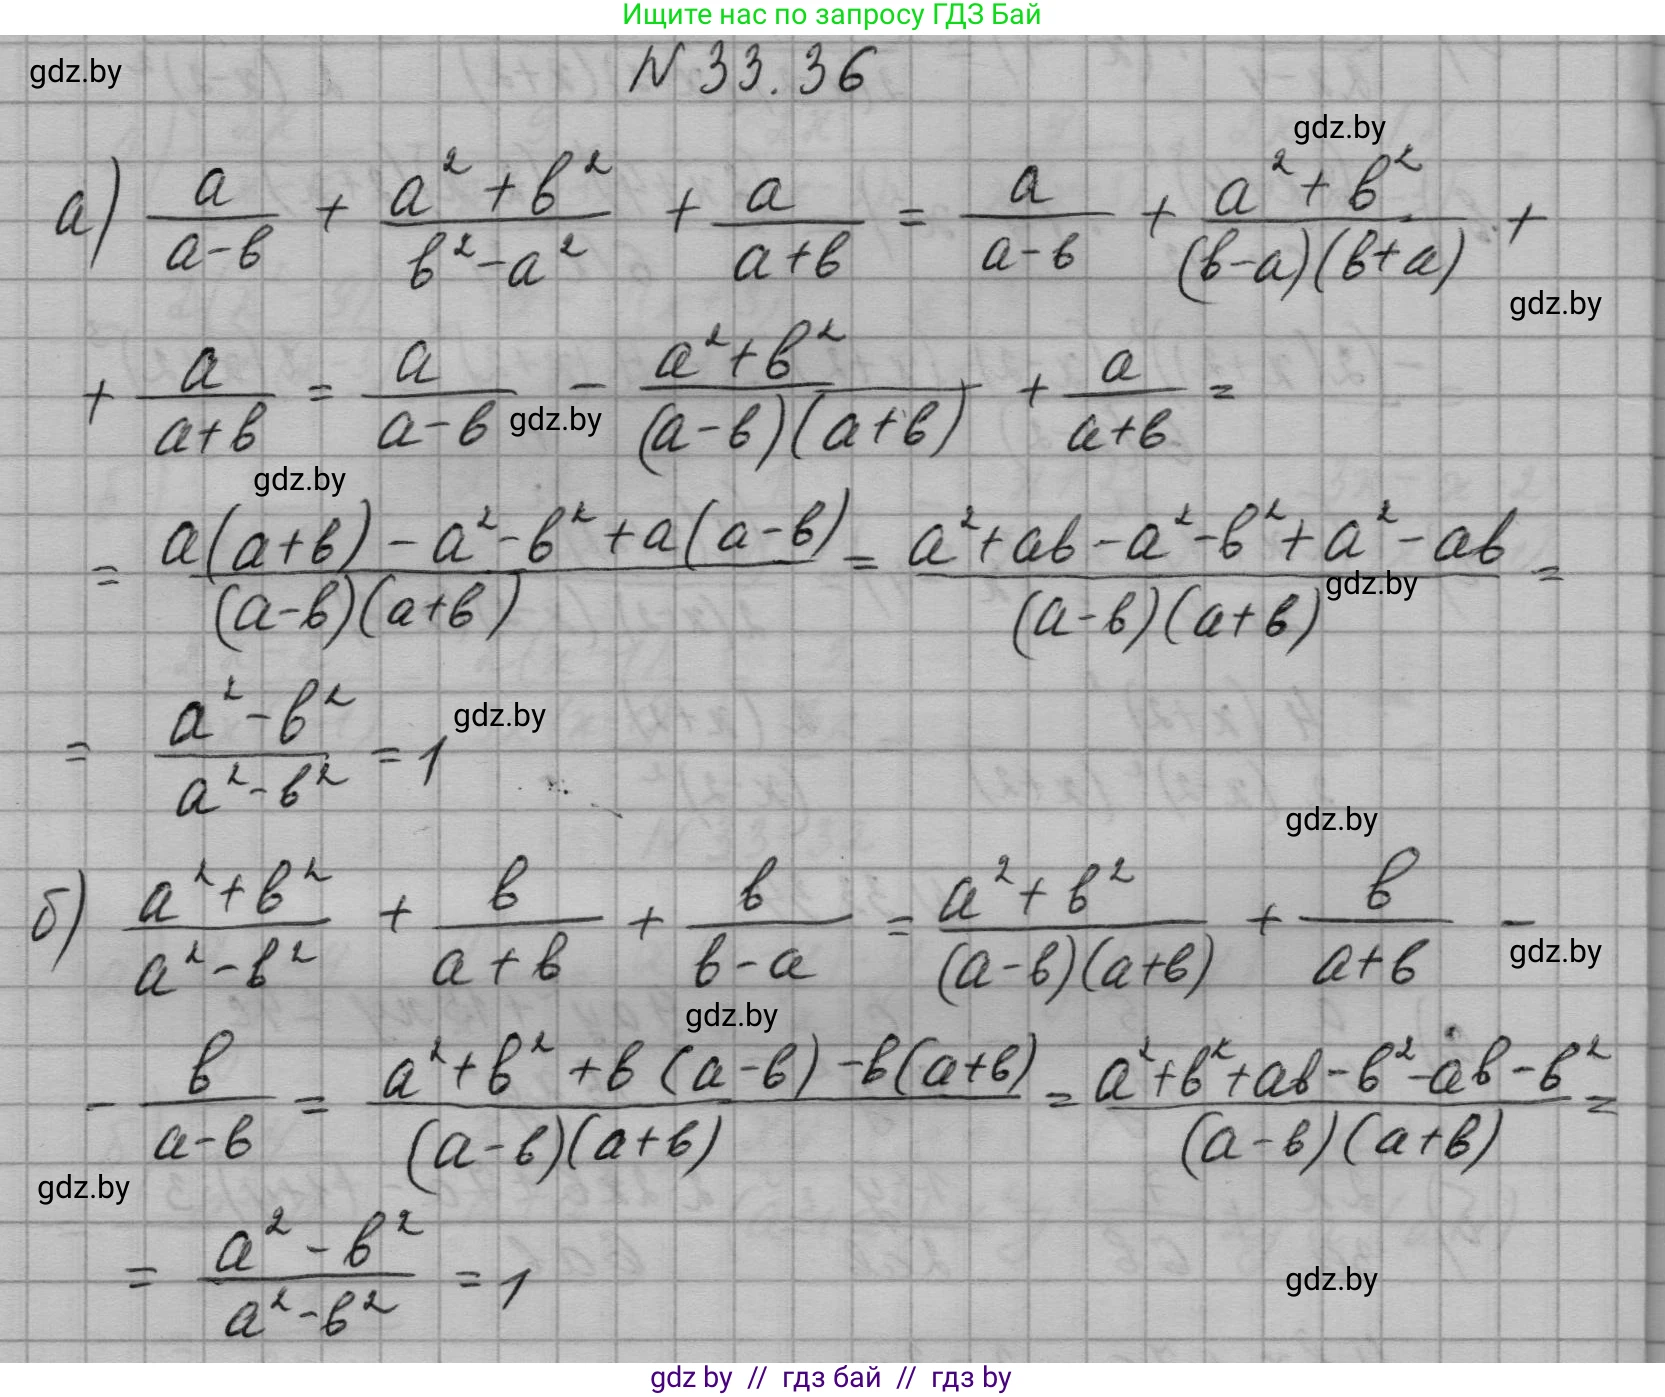 Ищите нас по запросу ГДЗ Бай
gdz.by
N 33.36
gdz.by
а) a/(a-b) + (a²+b²)/(b²-a²) + a/(a+b) = a/(a-b) + (a²+b²)/((b-a)(b+a)) +
gdz.by
+ a/(a+b) = a/(a-b) - (a²+b²)/((a-b)(a+b)) + a/(a+b) =
gdz.by
gdz.by
= (a(a+b)-a²-b²+a(a-b))/((a-b)(a+b)) = (a²+ab-a²-b²+a²-ab)/((a-b)(a+b)) =
gdz.by
= (a²-b²)/(a²-b²) = 1
gdz.by
gdz.by
б) (a²+b²)/(a²-b²) + b/(a+b) + b/(b-a) = (a²+b²)/((a-b)(a+b)) + b/(a+b) -
gdz.by
gdz.by
- b/(a-b) = (a²+b²+b(a-b)-b(a+b))/((a-b)(a+b)) = (a²+b²+ab-b²-ab-b²)/((a-b)(a+b)) =
gdz.by
= (a²-b²)/(a²-b²) = 1
gdz.by
gdz by // гдз бай // гдз by